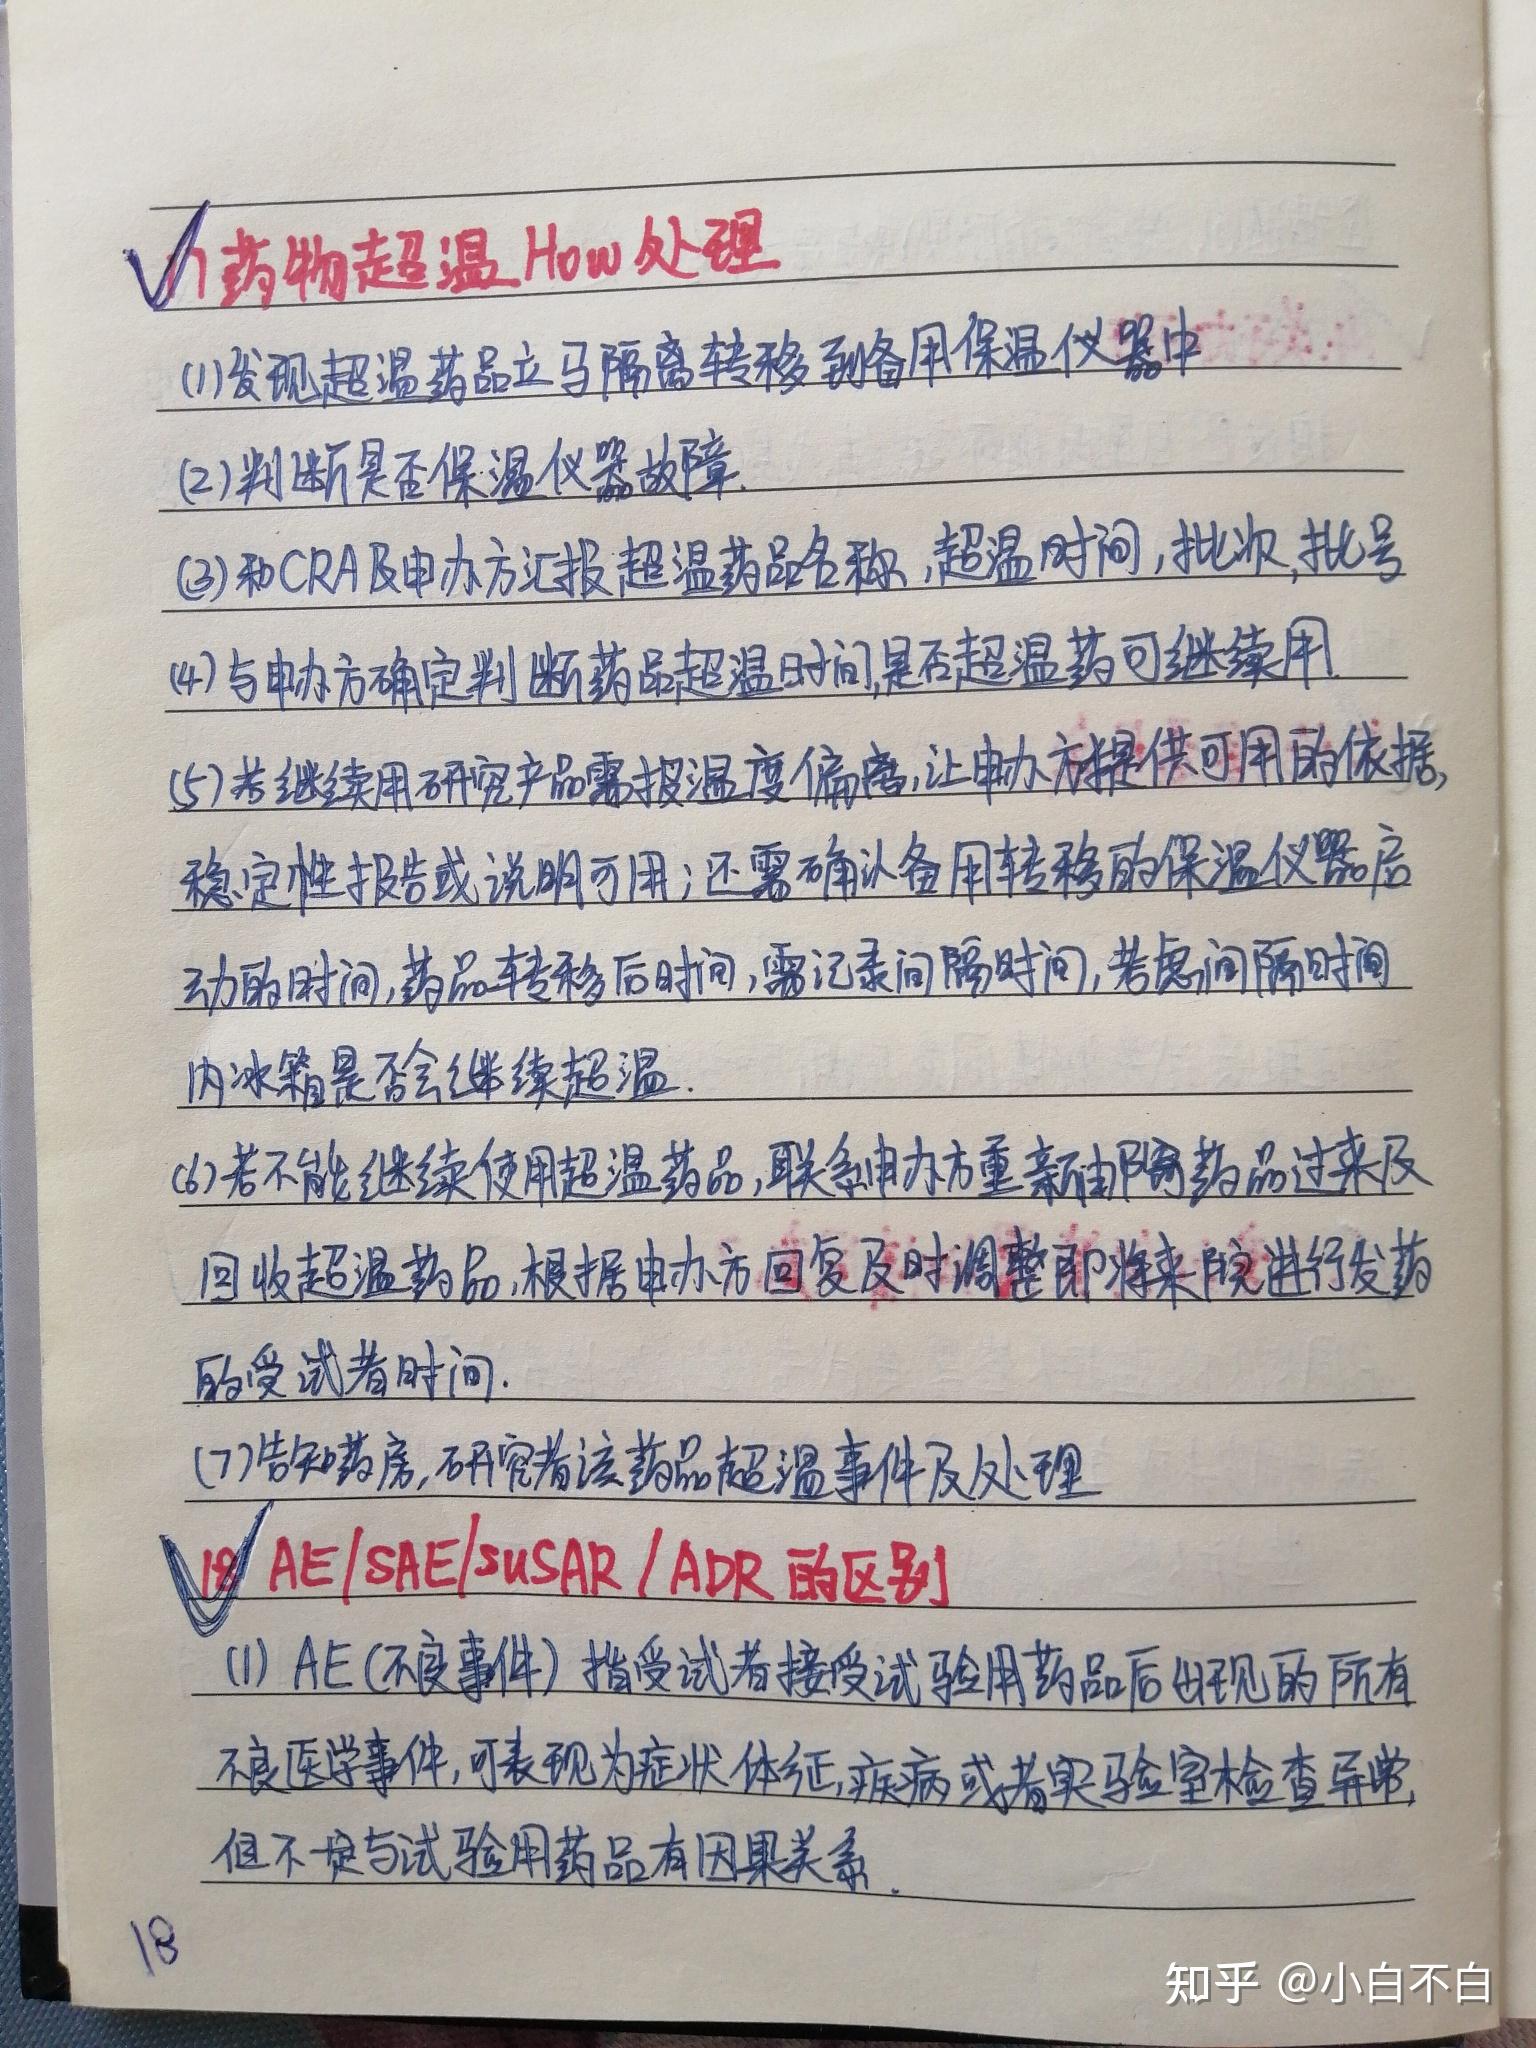 17 药物超温How处理
(1)发现超温药品立马隔离转移到备用保温仪器中
(2)判断是否保温仪器故障.
(3)和CRA及申办方汇报超温药品名称,超温时间,批次,批号
(4)与申办方确定判断药品超温时间,是否超温药可继续用.
(5)若继续用研究产品需报温度偏离,让申办方提供可用的依据,
稳定性报告或说明可用;还需确认备用转移的保温仪器启
动的时间,药品转移后时间,需记录间隔时间,考虑间隔时间
内冰箱是否会继续超温.
(6)若不能继续使用超温药品,联系申办方重新邮寄药品过来及
回收超温药品,根据申办方回复及时调整即将来院进行发药
的受试者时间.
(7)告知药房,研究者该药品超温事件及处理
18 AE/SAE/SUSAR/ADR的区别
(1) AE(不良事件)指受试者接受试验用药品后出现的所有
不良医学事件,可表现为症状体征,疾病或者实验室检查异常,
但不一定与试验用药品有因果关系.
18
知乎 @小白不白